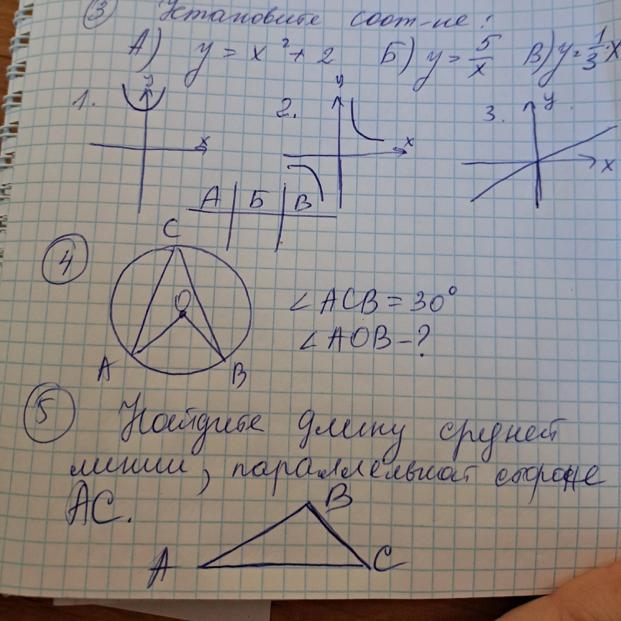 3 Установите соот-ие:
А) y = x² + 2 Б) y = 5/x В) y = 1/3 x
1. y x
2. y x
3. y x
А Б В
4
C
O
A
B
∠ACB = 30°
∠AOB - ?
5 Найдите длину средней
линии, параллельной стороне
AC.
B
A C